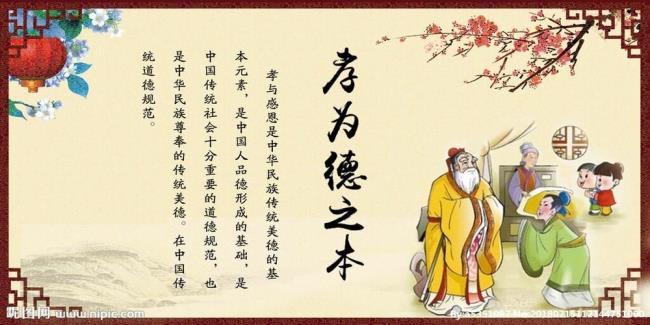 孝为德之本
孝与感恩是中华民族传统美德的基
本元素，是中国人品德形成的基础，是
中国传统社会十分重要的道德规范，也
是中华民族尊奉的传统美德。在中国传
统道德规范。
昵图网 www.nipic.com